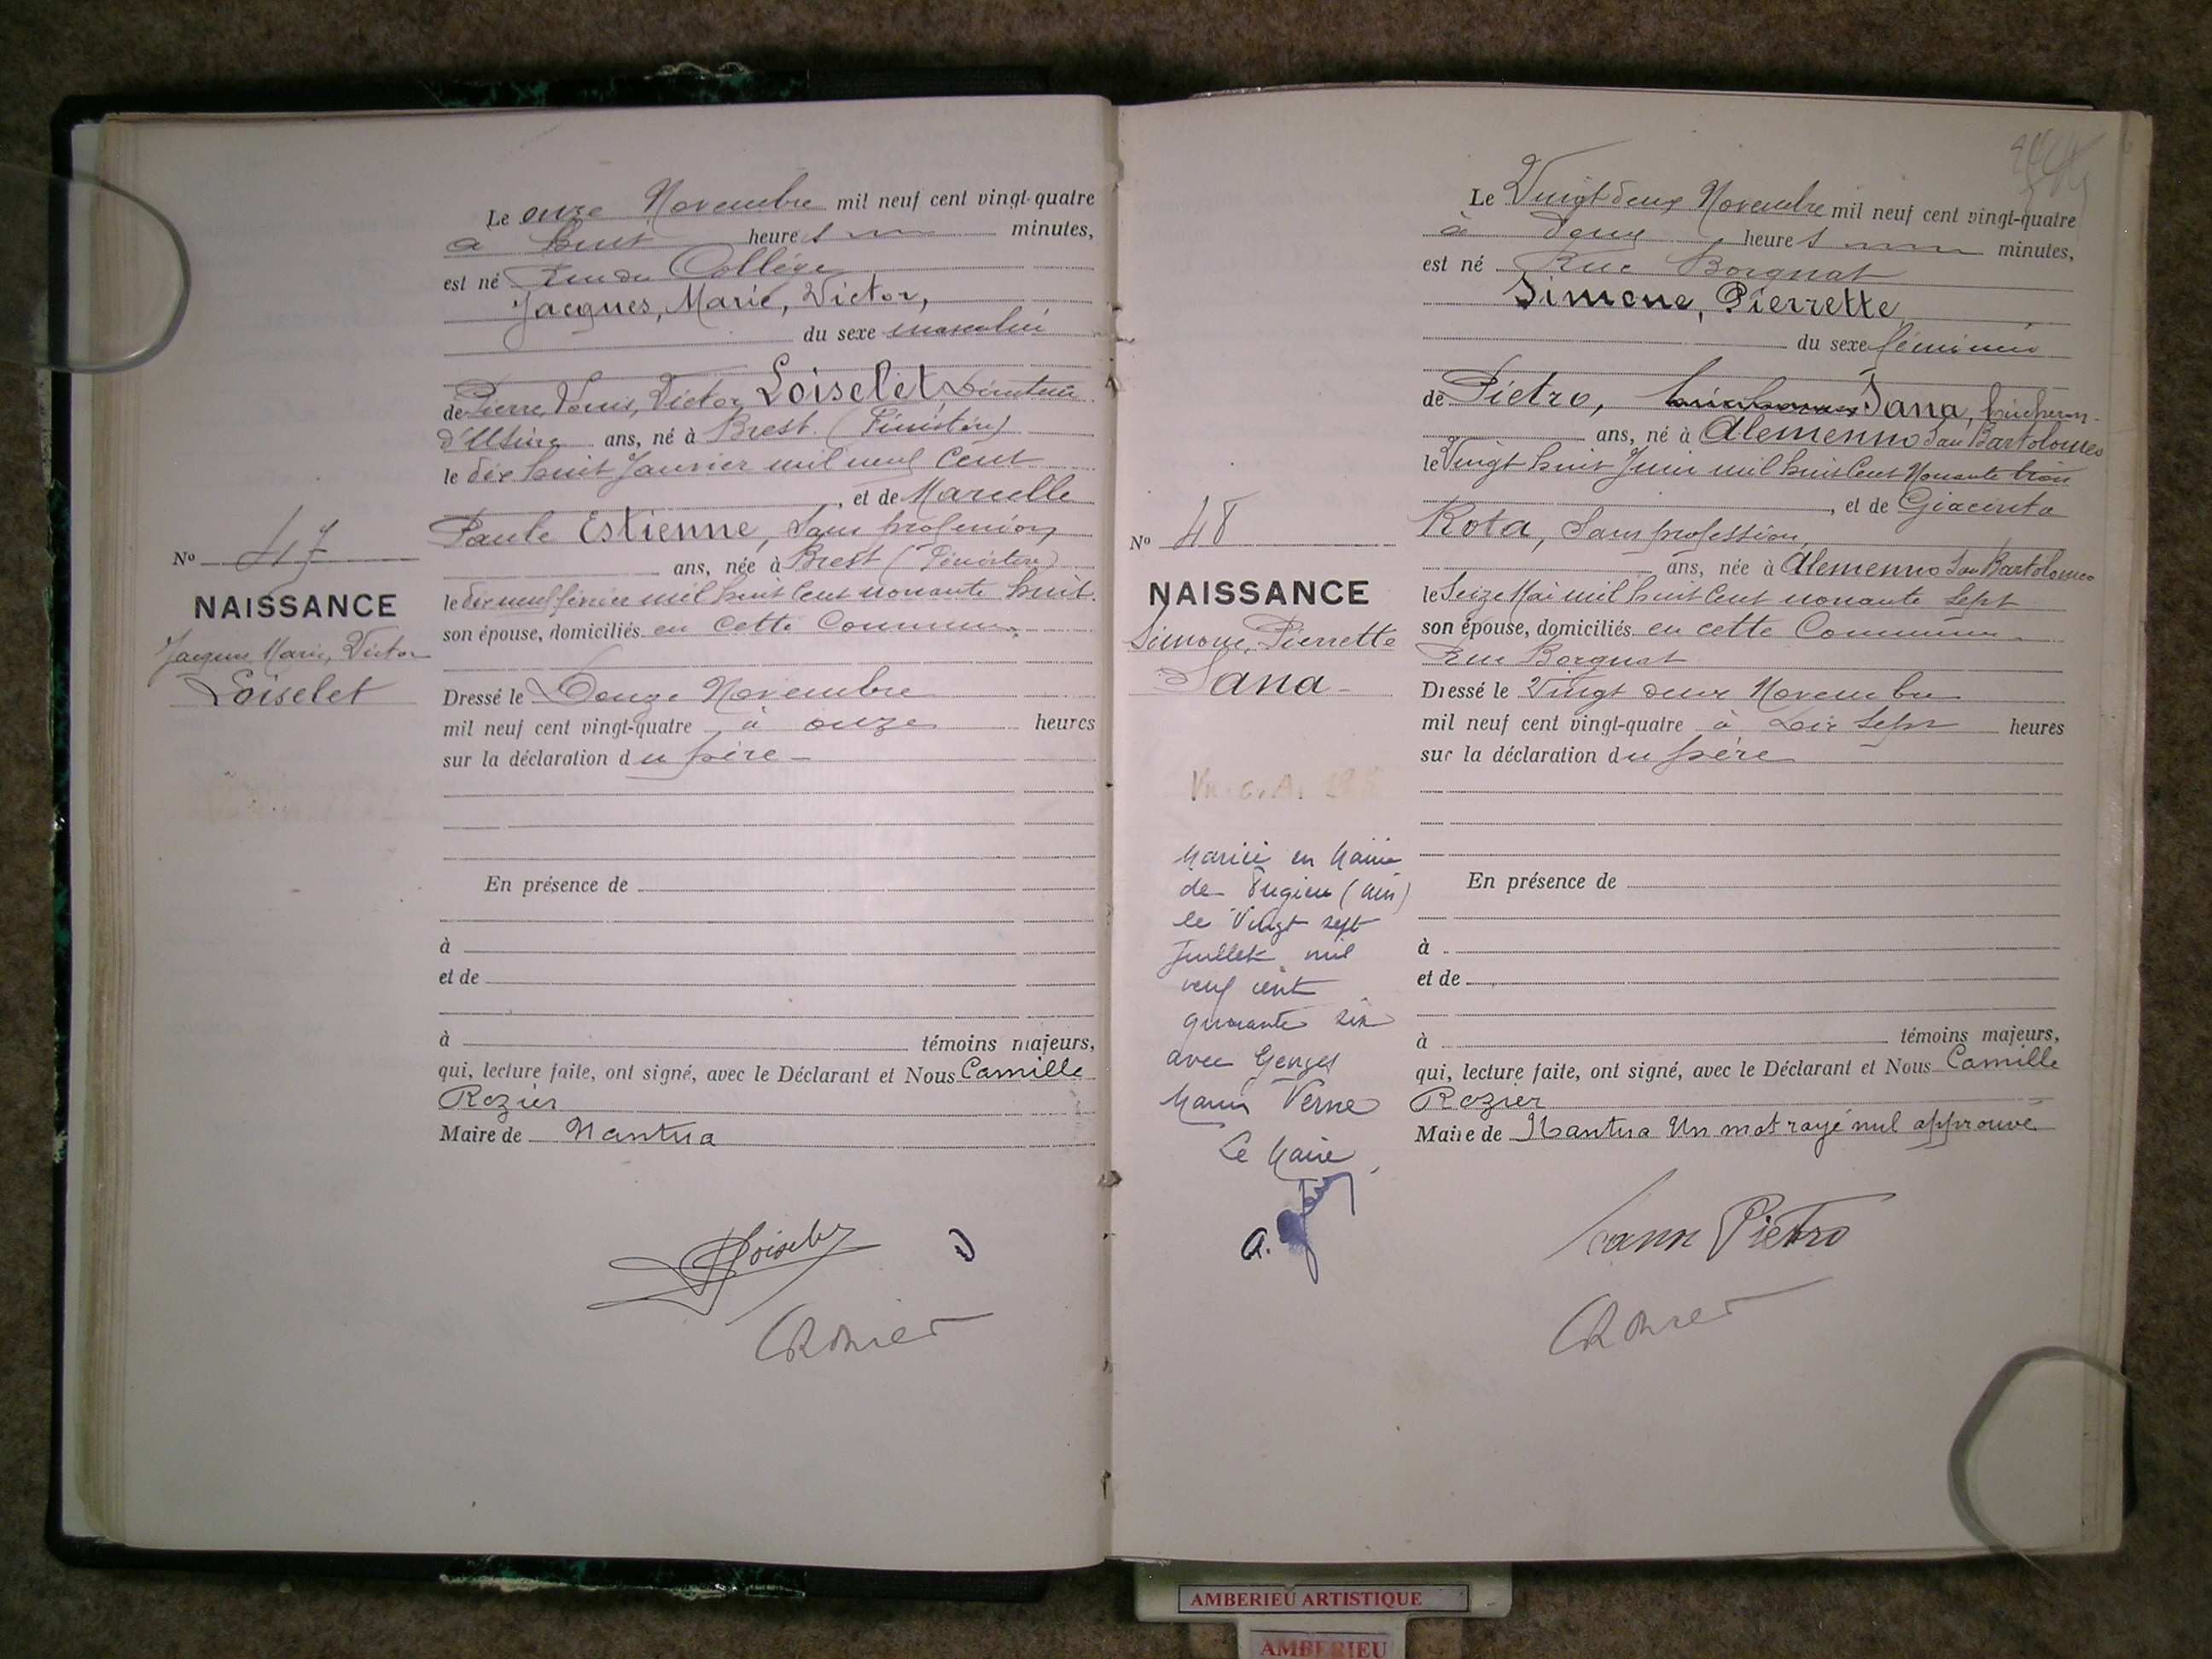 Le onze Novembre mil neuf cent vingt-quatre
à huit heures minutes,
est né Rue du Collège
Jacques, Marie, Victor,
du sexe masculin
de Pierre, Louis, Victor, Loiselet, Directeur
d'Usine ans, né à Brest (Finistère)
le dix huit Janvier mil neuf cent
, et de Marcelle
Paule Estienne, Sans profession,
ans, née à Brest (Finistère)
le dix neuf février mil huit cent nonante huit.
son épouse, domiciliés en cette Commune,
Nº 47
NAISSANCE
Jacques Marie, Victor
Loiselet
Dressé le Douze Novembre
mil neuf cent vingt-quatre à onze heures
sur la déclaration du père
En présence de
à
et de
à témoins majeurs,
qui, lecture faite, ont signé, avec le Déclarant et Nous Camille
Rozier
Maire de Nantua
Loiselet
CRozier
Le Vingt deux Novembre mil neuf cent vingt-quatre
à deux heures minutes,
est né Rue Borgnat
Simone, Pierrette
du sexe féminin
de Pietro, bucheron Sana, bûcheron
ans, né à Alemenno San Bartolomeo
le Vingt huit Juin mil huit cent Nonante trois
, et de Giacinta
Rota, Sans profession,
ans, née à Alemenno San Bartolomeo
le Seize Mai mil huit cent nonante sept
son épouse, domiciliés en cette Commune
Rue Borgnat
Nº 48
NAISSANCE
Simone, Pierrette
Sana
Dressé le Vingt deux Novembre
mil neuf cent vingt-quatre à dix sept heures
sur la déclaration du père
En présence de
à
et de
à témoins majeurs,
qui, lecture faite, ont signé, avec le Déclarant et Nous Camille
Rozier
Maire de Nantua Un mot rayé nul approuvé
Mariée en Mairie
de Pugieu (Ain)
le Vingt sept
Juillet mil
neuf cent
quarante six
avec Georges
Marius Verne
Le Maire,
Pietro
CRozier
AMBERIEU ARTISTIQUE
AMBERIEU